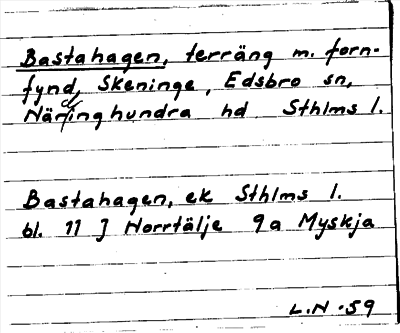 Bastahagen, terräng m. forn-
fynd, Skeninge, Edsbro sn,
Närdinghundra hd Sthlms l.
Bastahagen, ek Sthlms l.
bl. 11 J Norrtälje 9a Myskja
L.N. 59